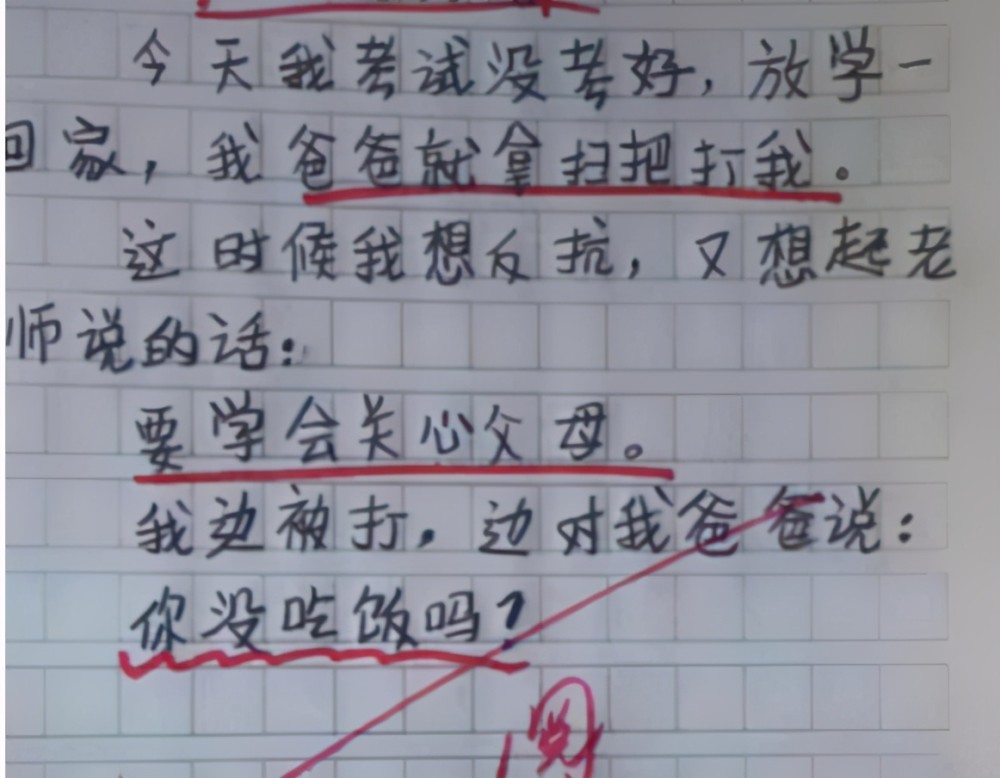 今天我考试没考好，放学一
回家，我爸爸就拿扫把打我。
这时候我想反抗，又想起老
师说的话：
要学会关心父母。
我边被打，边对我爸爸说：
你没吃饭吗？